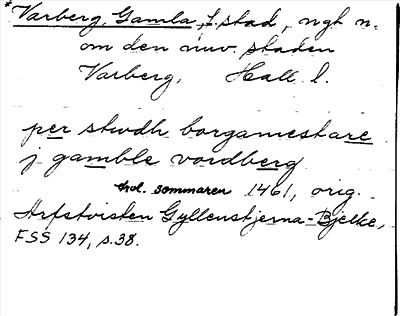 * Varberg, Gamla, f. stad, ngt n.
om den nuv. staden
Varberg, Hall. l.
per stwdh borgamestare
j gamble vordberg
hol. sommaren 1461, orig.
Arfstvisten Gyllenstjerna-Bjelke,
FSS 134, s. 38.